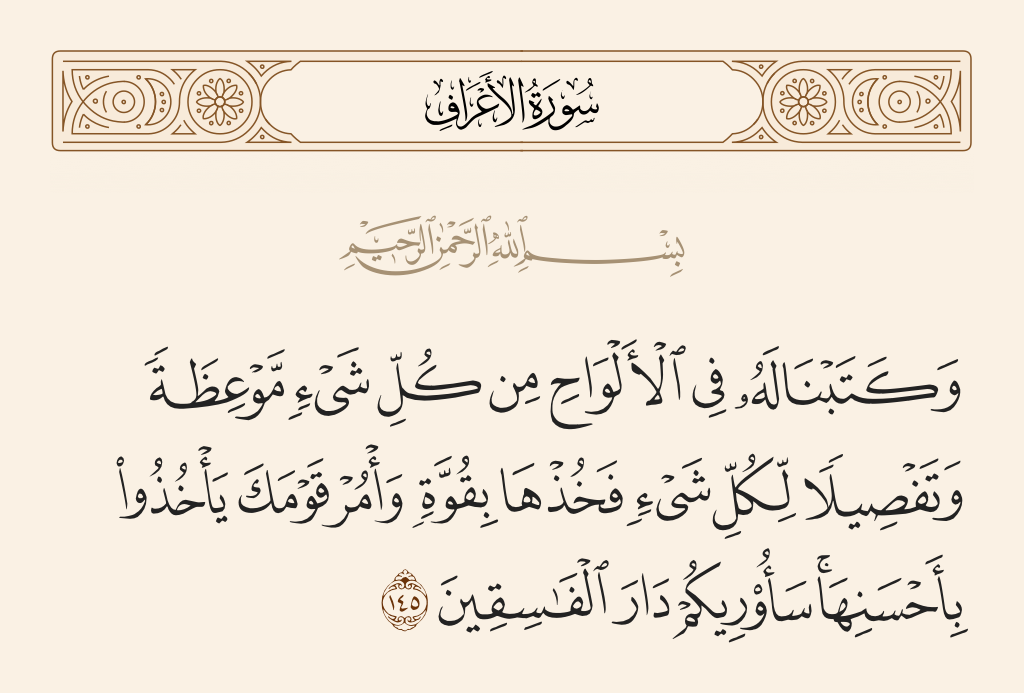 سُورَةُ الأَعْرَافِ
بِسْمِ ٱللَّهِ ٱلرَّحْمَٰنِ ٱلرَّحِيمِ
وَكَتَبْنَا لَهُۥ فِى ٱلْأَلْوَاحِ مِن كُلِّ شَىْءٍ مَّوْعِظَةً
وَتَفْصِيلًا لِّكُلِّ شَىْءٍ فَخُذْهَا بِقُوَّةٍ وَأْمُرْ قَوْمَكَ يَأْخُذُوا۟
بِأَحْسَنِهَا ۚ سَأُو۟رِيكُمْ دَارَ ٱلْفَٰسِقِينَ ١٤٥